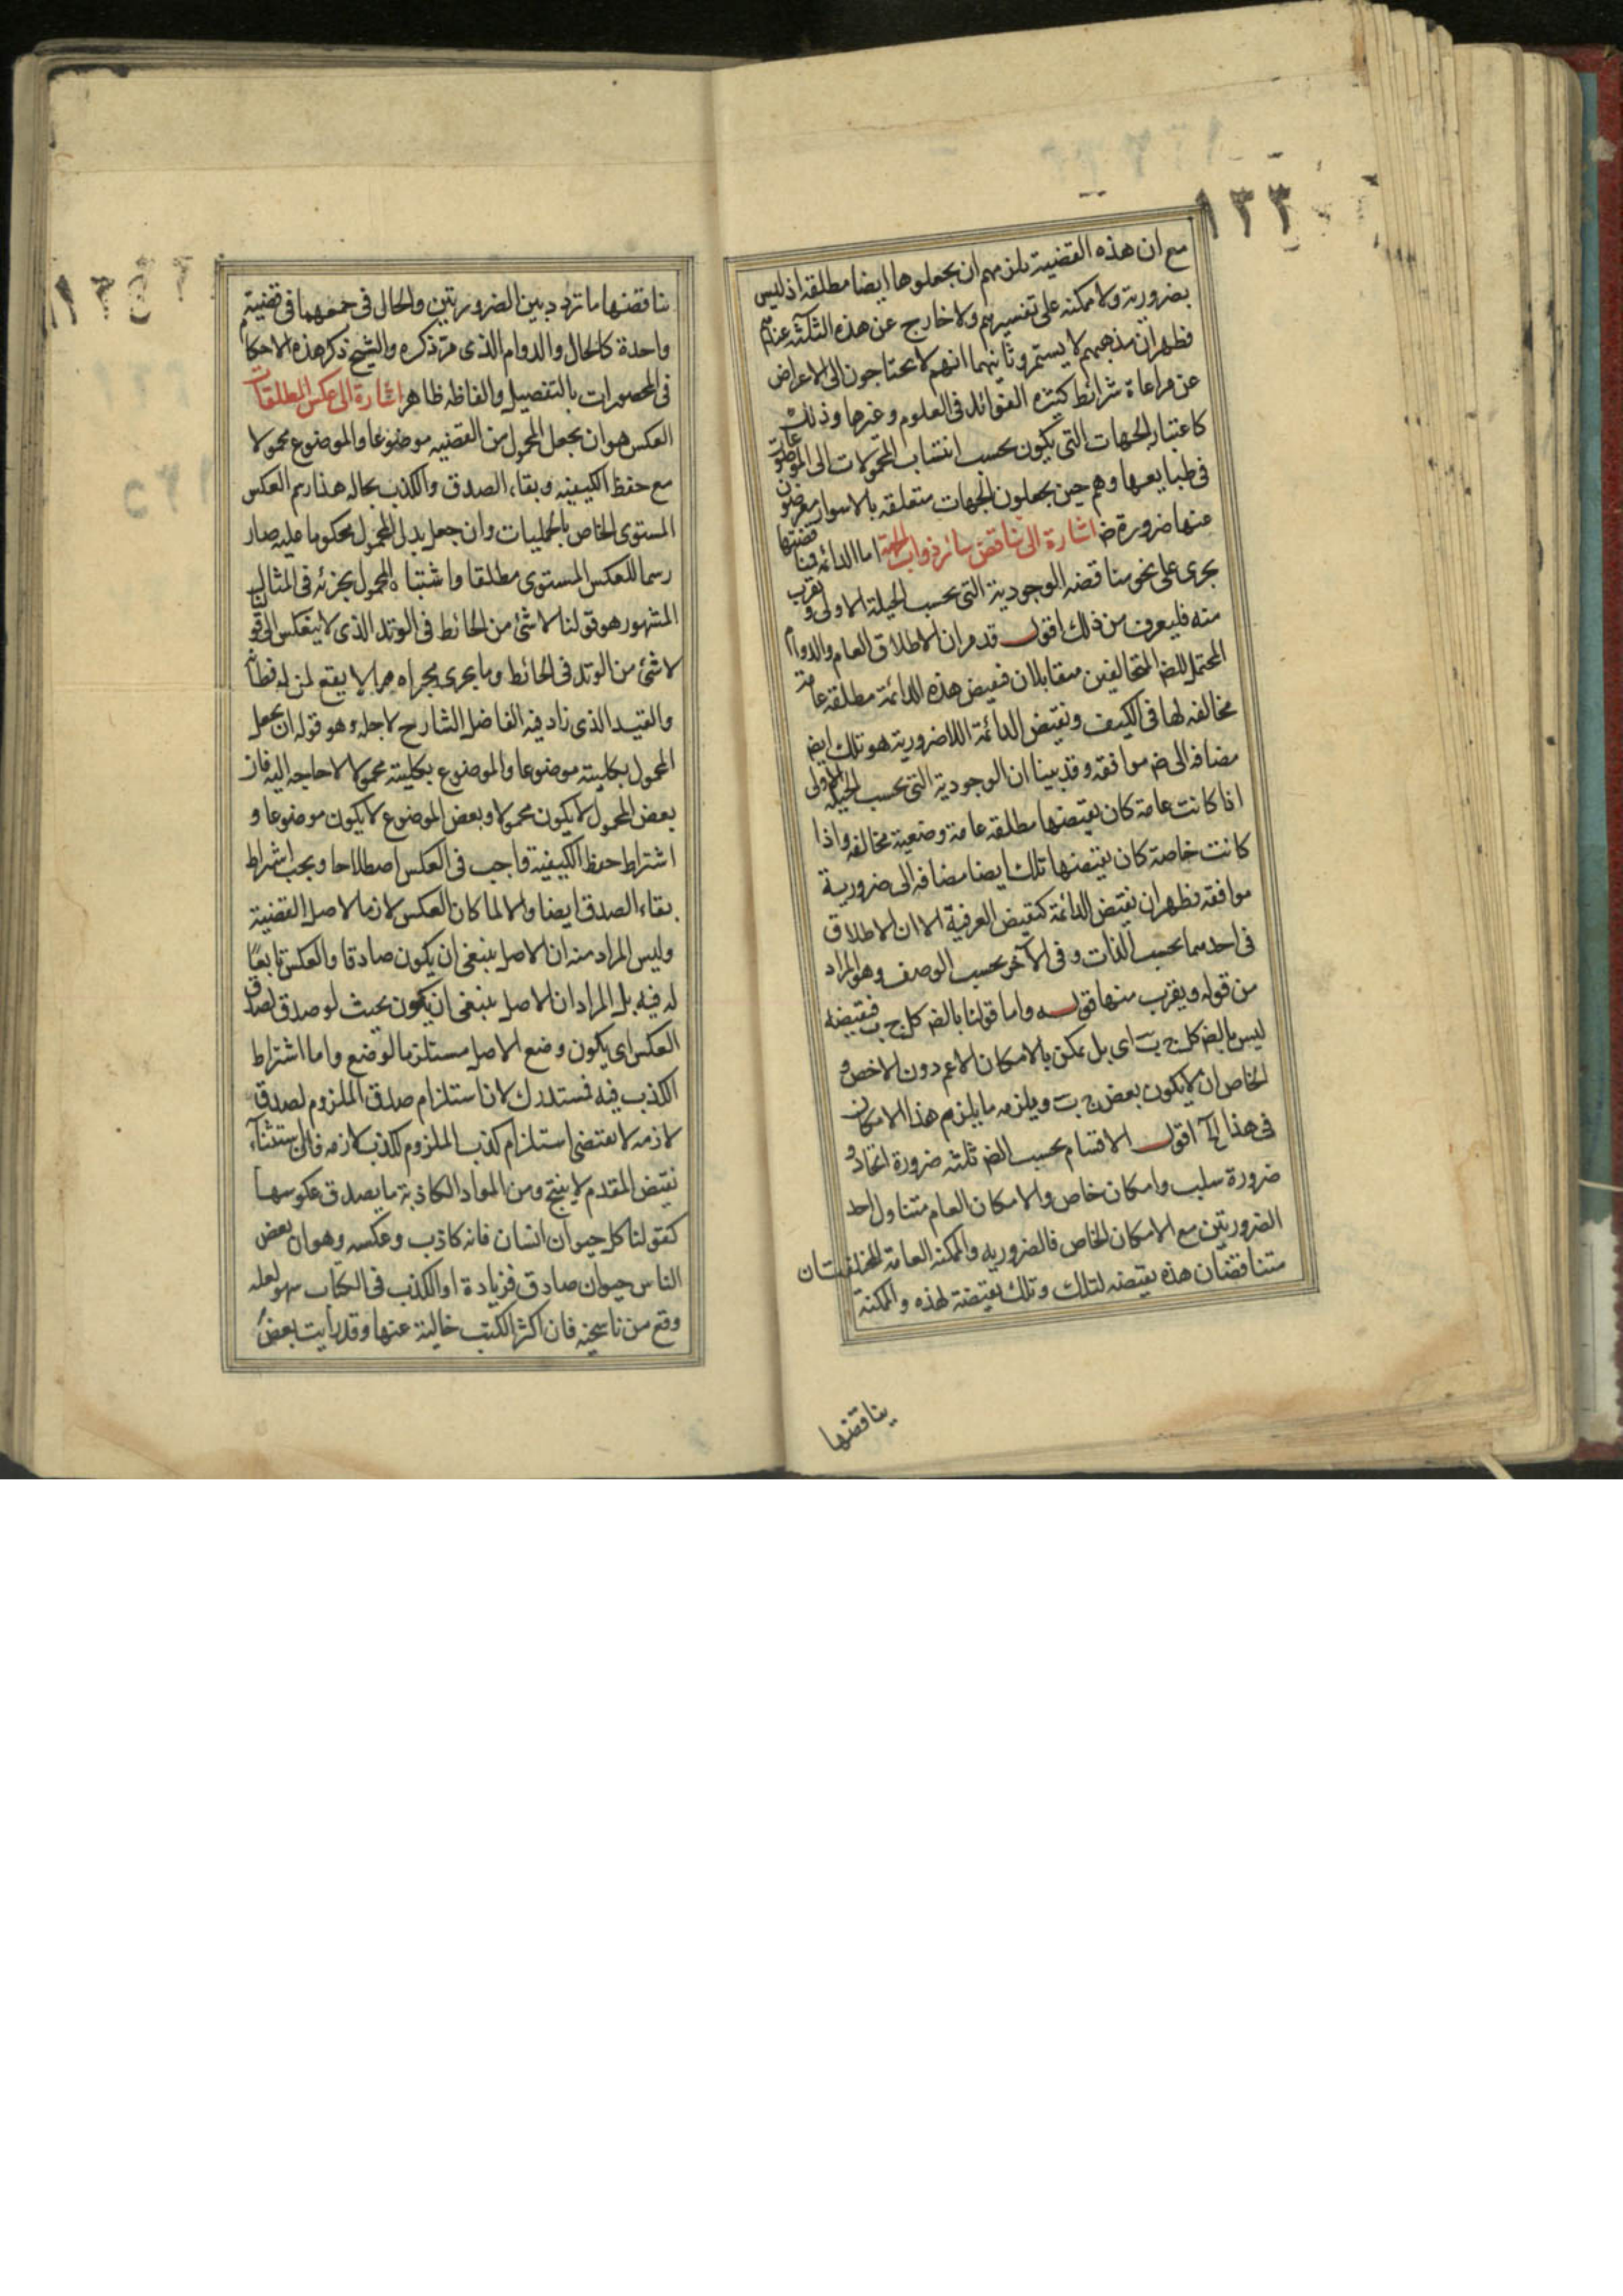 ١٣٣
مع ان هذه القضية يلزمهم ان يجعلوها ايضا مطلقه اذ ليس
بضرورية ولا ممكنه على تفسيرهم ولا خارج عن هذه الثلثه عندهم
فظهر ان مذهبهم لا يستمر وثانيهما انهم لا يحتاجون الى الاعراض
عن مراعاة شرائط كثيره الفوائد فى العلوم وغيرها وذلك
كاعتبار الجهات التى يكون بحسب انتساب المحمولات الى الموضوعات
فى طبايعها وهم حين يجعلون الجهات متعلقه بالاسوار معرضون
عنها ضرورة ض اشارة الى تناقض سائر ذوات الجهة اما الدائمه فمناقضتها
يجرى على نحو مناقضه الوجودية التى بحسب الحيلة الاولى و تقرب
منه فليعرف من ذلك اقول قد مر ان الاطلاق العام والدوام
المحتمل للضر المتخالفين متقابلان فنقيض هذه الدائمة مطلقة عامة
مخالفه لها فى الكيف ونقيض الدائمة اللاضرورية هو تلك ايض
مضافه الى ض موافقه وقد بينا ان الوجودية التى بحسب الحيلة الاولى
اذا كانت عامة كان نقيضها مطلقه عامة وصفية مخالفه واذا
كانت خاصة كان نقيضها تلك ايضا مضافه الى ضرورية
موافقه فظهر ان نقيض الدائمة كنقيض العرفية الا ان الاطلاق
فى احدهما بحسب الذات وفى الآخر بحسب الوصف وهو المراد
من قوله ويقرب منها قوله واما قولنا بالضر كل ج ب فنقيضه
ليس بالضر كل ج ب اى بل يمكن بالامكان الاعم دون الاخص و
الخاص ان لا يكون بعض ج ب ويلزمه ما يلزم هذا الامكان
فى هذا اقول الاقسام بحسب الضر ثلثه ضرورة ايجاد و
ضرورة سلب وامكان خاص والامكان العام متناول احد
الضروريتين مع الامكان الخاص فالضروريه والممكنه العامة المختلفتان
متناقضتان هذه نقيضه لتلك وتلك نقيضة لهذه والممكنة
يناقضها
١٣٤
يناقضها ما تردد بين الضروريتين والحال فى جمعهما فى قضية
واحدة كالحال والدوام الذى مر ذكره والشيخ ذكر هذه الاحكام
فى المحصورات بالتفصيل والفاظه ظاهر اشارة الى عكس المطلقات
العكس هو ان يجعل المحمول من القضيه موضوعا والموضوع محمولا
مع حفظ الكيفيه وبقاء الصدق والكذب بحاله هذا رسم العكس
المستوى الخاص بالحمليات وان جعل بدل المحمول محكوما عليه صار
رسما للعكس المستوى مطلقا واشتباه المحمول بجزئه فى المثال
المشهور هو قولنا لا شئ من الحائط فى الوتد الذى لا ينعكس الى قولنا
لا شئ من الوتد فى الحائط وما يجرى مجراه مما لا يقع لمن له فطانة
والقيد الذى زاد فيه الفاضل الشارح لاجله وهو قوله ان يجعل
المحمول بكليته موضوعا والموضوع بكليته محمولا لا حاجه اليه فان
بعض المحمول لا يكون محمولا وبعض الموضوع لا يكون موضوعا و
اشتراط حفظ الكيفية واجب فى العكس اصطلاحا ويجب اشتراط
بقاء الصدق ايضا والا لما كان العكس لازما لاصل القضية
وليس المراد منه ان الاصل ينبغى ان يكون صادقا والعكس تابعا
له فيه بل المراد ان الاصل ينبغى ان يكون بحيث لو صدق لصدق
العكس اى يكون وضع الاصل مستلزما لوضع واما اشتراط
الكذب فيه فمستدرك لان استلزام صدق الملزوم لصدق
لازمه لا يقتضى استلزام كذب الملزوم لكذب لازمه فان استثناء
نقيض المقدم لا ينتج ومن المواد الكاذبة ما يصدق عكوسها
كقولنا كل حيوان انسان فانه كاذب وعكسه وهو ان بعض
الناس حيوان صادق فزيادة او الكذب فى الكتاب سهو لعله
وقع من ناسخيه فان اكثر الكتب خالية عنها وقد رأيت بعض